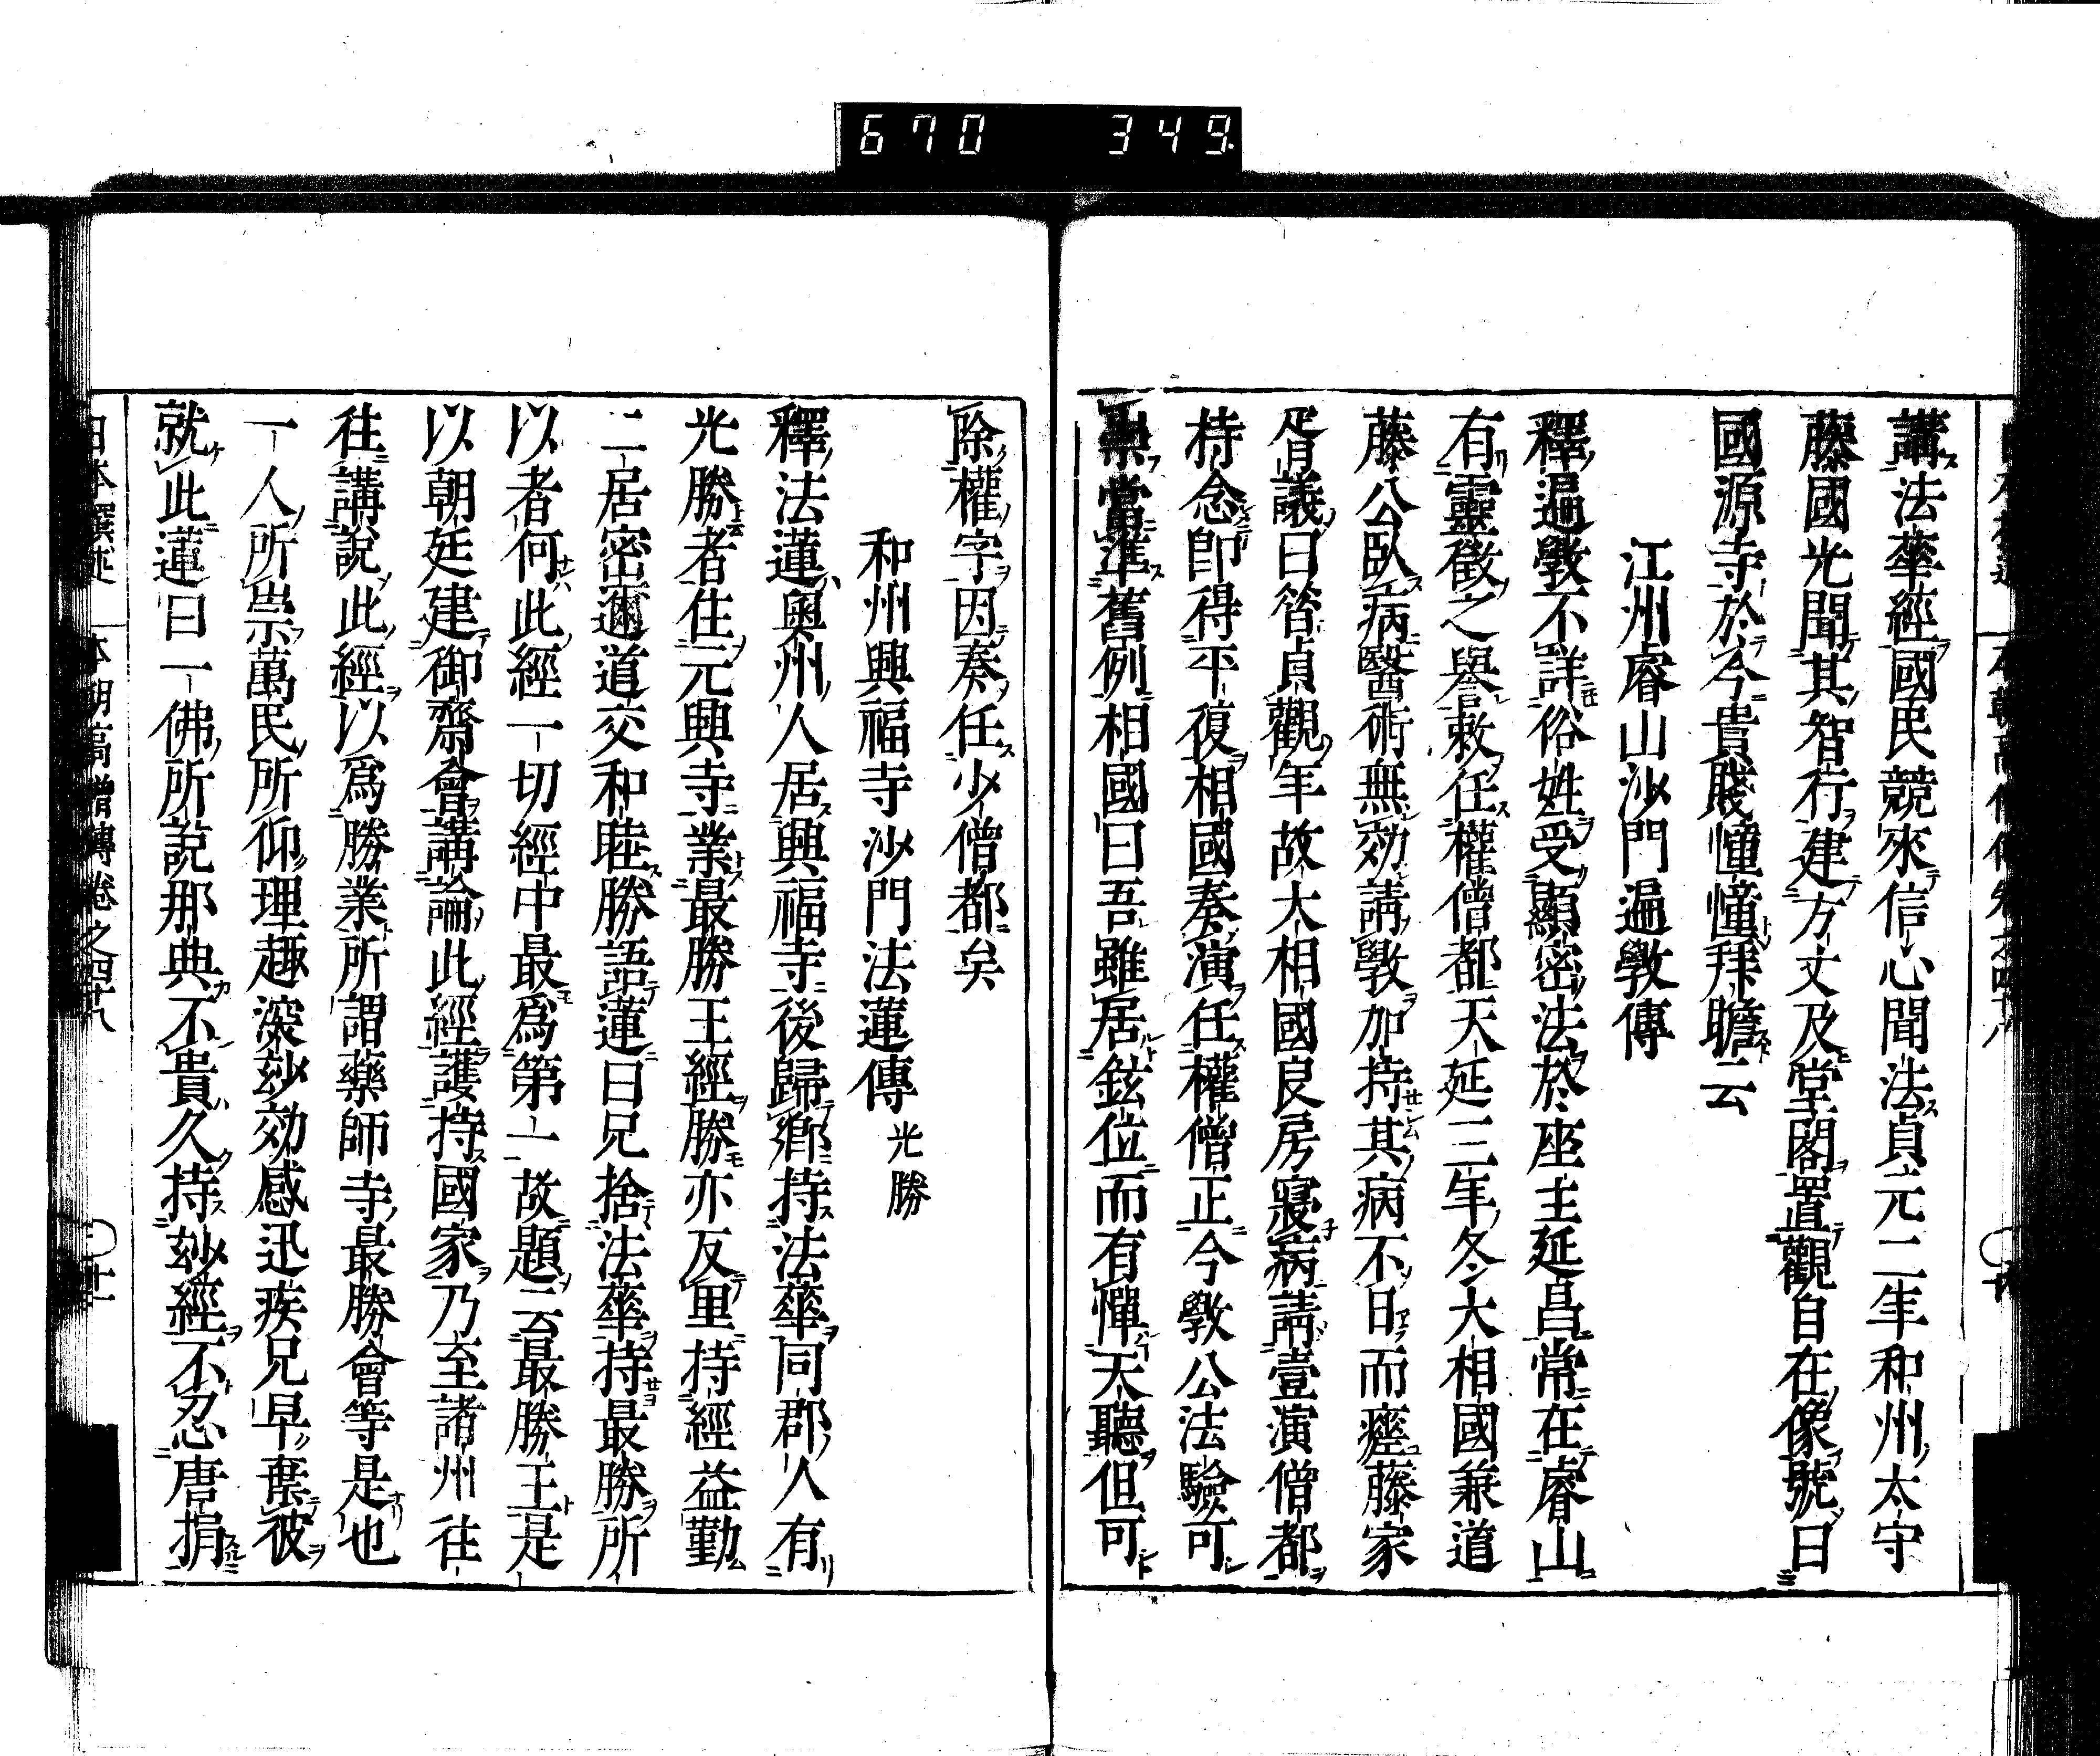 670 349
講法華經國民競來信心聞法貞元二年和州太守
藤國光聞其智行建方丈及堂閣置觀自在像號曰
國源寺於今貴賤憧憧拜瞻云
江州睿山沙門遍斆傳
釋遍斆不詳俗姓受顯密法於座主延昌常在睿山
有靈徵之譽敕任權僧都天延三年冬大相國兼道
藤公臥病醫術無効請斆加持其病不日而瘥藤家
胥議曰答貞觀年故大相國良房寢病請壹演僧都
持念即得平復相國奏演任權僧正今斆公法驗可
當準舊例相國曰吾雖居鉉位而有憚天聽但可
除權字因奏任少僧都矣
和州興福寺沙門法蓮傳 光勝
釋法蓮奧州人居興福寺後歸鄉持法華同郡人有
光勝者住元興寺業最勝王經勝亦反里持經益勤
二居密邇道交和睦勝語蓮曰兄捨法華持最勝所
以者何此經一切經中最爲第一故題云最勝王是
以朝廷建御齋會講論此經護持國家乃至諸州往
往講說此經以爲勝業所謂藥師寺最勝會等是也
一人所崇萬民所仰理趣深玅効感迅疾兄早棄彼
就此蓮曰一佛所說那典不貴久持玅經不忍唐捐
日本撰述 本朝高僧傳卷之四十八